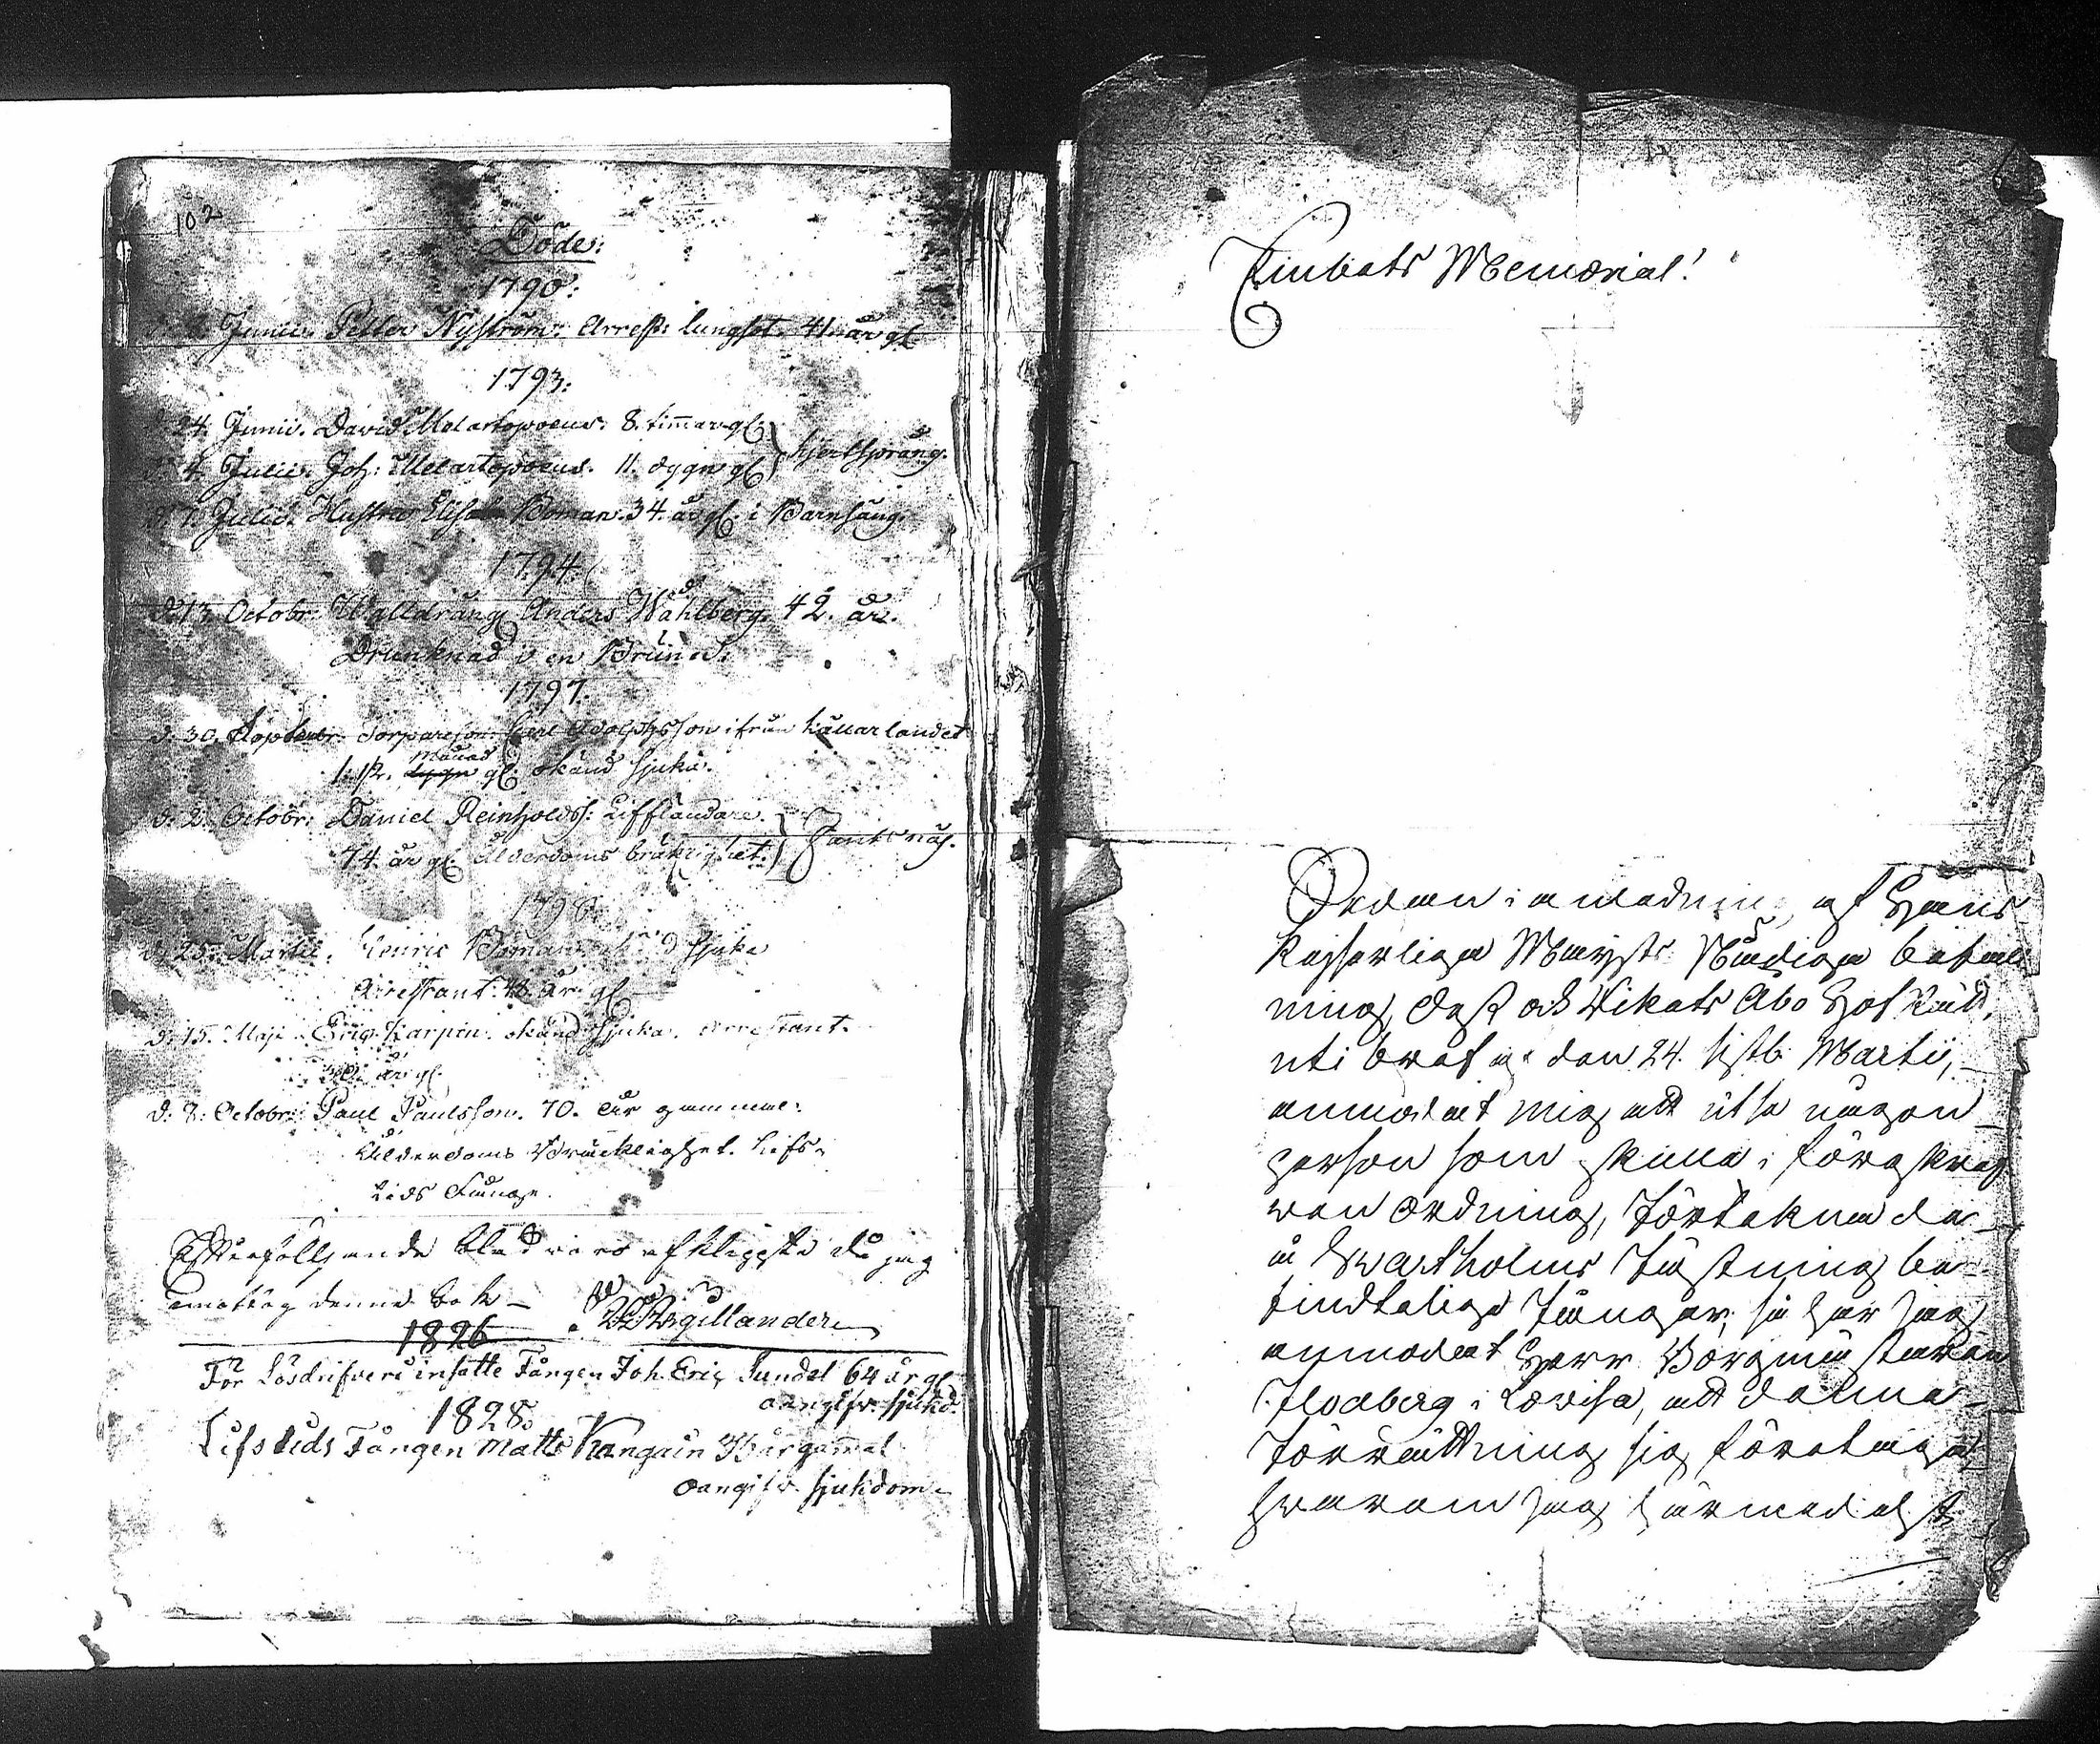 102
Döde:
1790:
Junii. Petter Nyström. Arrest: lungsot. 41 år gl.
1793:
d. 24. Junii. David Melartopoeus. 8. timar gl.
d. 4. Julii. Joh: Melartopoeus. 11. dygn gl. hjertsprång.
d. 7. Julii. Hustru Elisab: Boman. 34. år gl. i Barnsäng.
1794.
d. 13. Octobr. Walldräng Anders Wåhlberg. 42. år.
Drunknad i en Brunn.
1797.
d. 30. Torpareson Carl Adolphsson ifrån Källarlandet
1. 1/2. månad dygn gl. okänd sjuka.
d. 2. Octobr: Daniel Reinholds: Lifflandare.
74. år gl. Ålderdoms bräklighet. Fantsnäs.
d. 25. Martii. Henric Boman okänd sjuka
Arrestant. år gl.
d. 15. Maji. Eric Karpin. okänd sjuka. Arrestant.
år gl.
d. 7. Octobr: Paul Paulsson. 70. år gammal.
Ålderdoms Bräcklighet. Lifs-
tids Fånge.
Efterföljande blad voro afklippte då jag
emottog denna bok –
Argillander
1826
För Lösdrifveri insatte Fången Joh. Eric Sundel 64 år gl.
oangifv. sjukd.
1828.
Lifstids Fången Matts Kangain år gamal
oangifv. sjukdom.
Ödmjukt Memorial!
Sedan i anledning af Hans
Kejserliga Majsts Nådiga befall-
ning, Dess och Rikets Åbo Hof Rätt,
uti bref af den 24. sistl. Martii,
anmodat mig att utse någon
person som skulle i föreskref-
wen Ordning, förtekna de
å Swartholms Fästning be-
findtelige Fångar; så har jag
anmodat Herr Borgmästaren
Hodberg i Lovisa, att denna
förrättning sig företaga
hwarom jag härmedelst